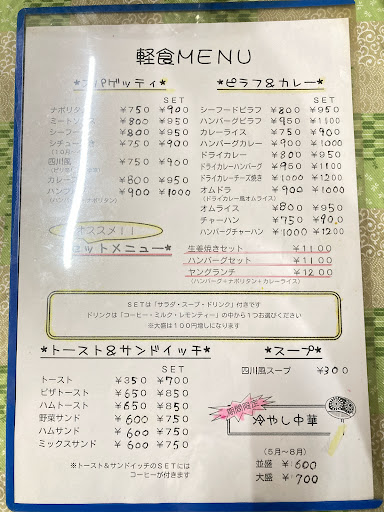 軽食MENU
*スパゲッティ*
SET
ナポリタン ¥750 ¥900
ミート ¥800 ¥950
シーフー ¥800 ¥950
シチュー ¥750 ¥900
四川風 ¥750 ¥900
カレー ¥800 ¥950
ハン ¥900 ¥1000
(ハンバーグ+ナポリタン)
*ピラフ&カレー*
SET
シーフードピラフ ¥800 ¥950
ハンバーグピラフ ¥950 ¥1100
カレーライス ¥750 ¥900
ハンバーグカレー ¥900 ¥1000
ドライカレー ¥800 ¥950
ドライカレーハンバーグ ¥950 ¥1100
ドライカレーチーズ焼き ¥1000 ¥1200
オムドラ ¥900 ¥1000
(ドライカレー風オムライス)
オムライス ¥800 ¥950
チャーハン ¥750 ¥900
ハンバーグチャーハン ¥1000 ¥1200
オススメ!!
セットメニュー*
生姜焼きセット ¥1100
ハンバーグセット ¥1100
ヤングランチ ¥1200
(ハンバーグ+ナポリタン+カレーライス)
SETは「サラダ・スープ・ドリンク」付きです
ドリンクは「コーヒー・ミルク・レモンティー」の中から1つお選びください
※大盛は100円増しになります
*トースト&サンドイッチ*
SET
トースト ¥350 ¥700
ピザトースト ¥650 ¥850
ハムトースト ¥650 ¥850
野菜サンド ¥600 ¥750
ハムサンド ¥600 ¥750
ミックスサンド ¥650 ¥750
※トースト&サンドイッチのSETには
コーヒーが付きます
*スープ*
四川風スープ ¥300
期間限定
冷やし中華
(5月~8月)
並盛 ¥600
大盛 ¥700